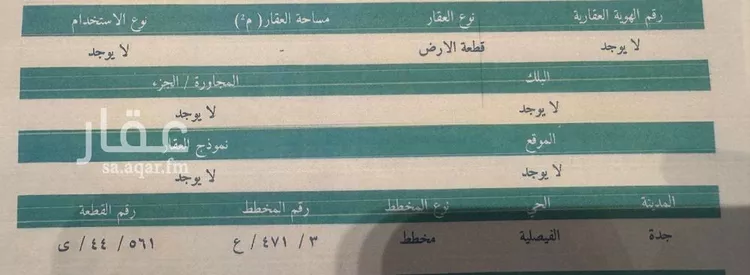 رقم الهوية العقارية نوع العقار مساحة العقار( م²) نوع الاستخدام
لا يوجد قطعة الارض - لا يوجد
البلك المجاورة / الجزء
لا يوجد لا يوجد
الموقع نموذج العقار
لا يوجد لا يوجد
المدينة الحي نوع المخطط رقم المخطط رقم القطعة
جدة الفيصلية مخطط ٣ / ٤٧١ / ع ٥٦١ / ٤٤ / ى
عقار
sa.aqar.fm